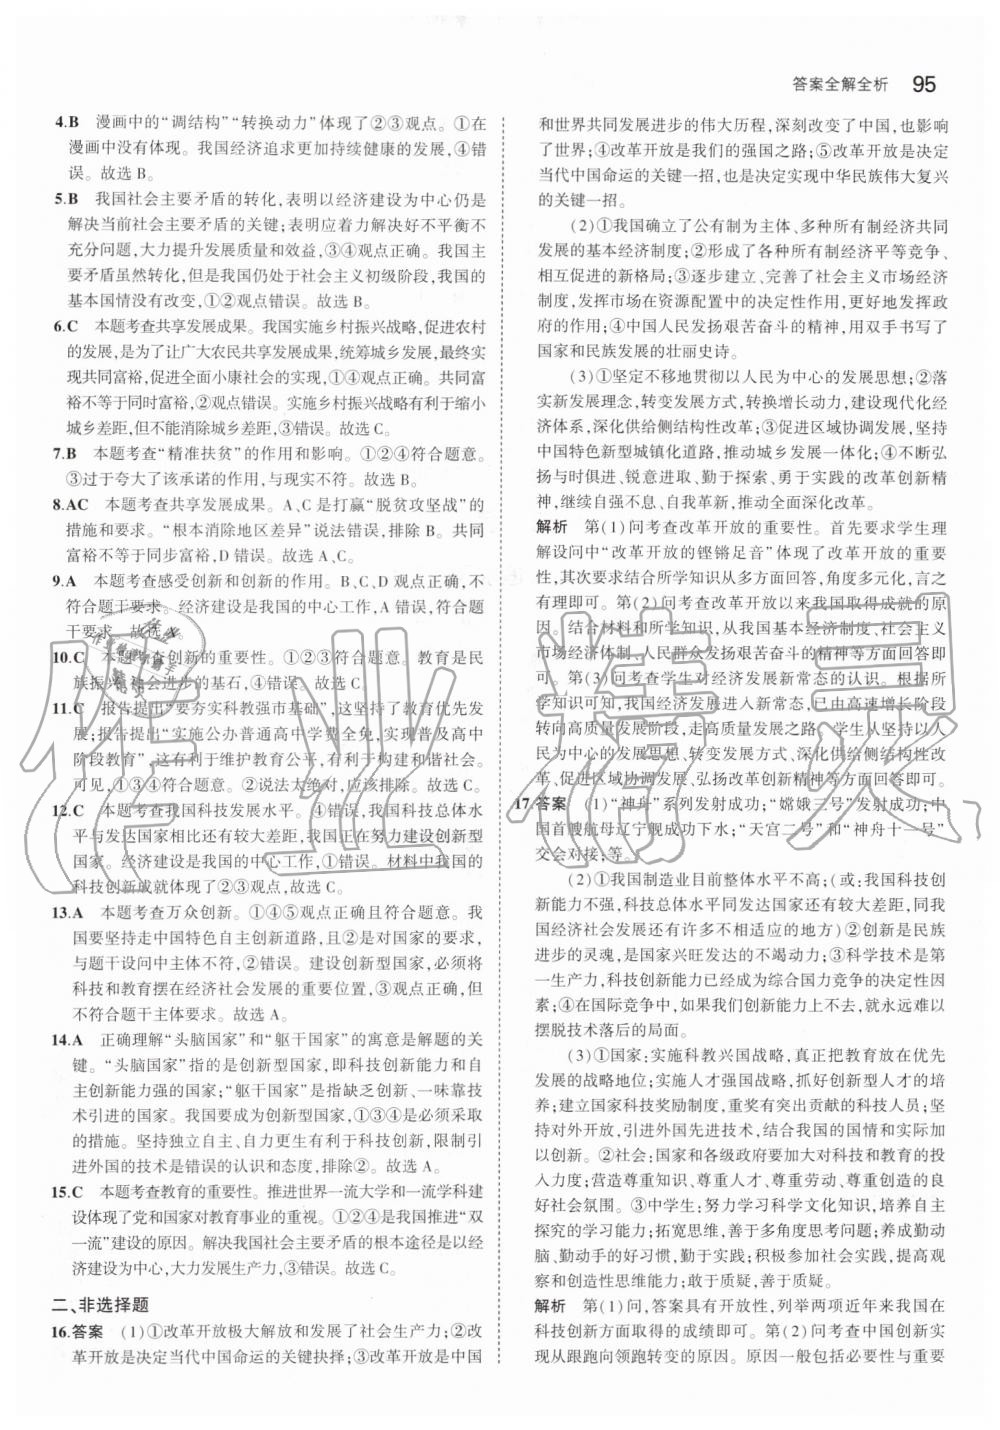 答案全解全析 95
4.B 漫画中的“调结构”“转换动力”体现了②③观点。①在
漫画中没有体现。我国经济追求更加持续健康的发展,④错
误。故选 B。
5.B 我国社会主要矛盾的转化,表明以经济建设为中心仍是
解决当前社会主要矛盾的关键;表明应着力解决好不平衡不
充分问题,大力提升发展质量和效益,③④观点正确。我国主
要矛盾虽然转化,但是我国仍处于社会主义初级阶段,我国的
基本国情没有改变,①②观点错误。故选 B。
6.C 本题考查共享发展成果。我国实施乡村振兴战略,促进农村
的发展,是为了让广大农民共享发展成果,统筹城乡发展,最终实
现共同富裕,促进全面小康社会的实现,①④观点正确。共同富
裕不等于同时富裕,②观点错误。实施乡村振兴战略有利于缩小
城乡差距,但不能消除城乡差距,③错误。故选 C。
7.B 本题考查“精准扶贫”的作用和影响。①②④符合题意。
③过于夸大了该承诺的作用,与现实不符。故选 B。
8.AC 本题考查共享发展成果。A、C 是打赢“脱贫攻坚战”的
措施和要求。“根本消除地区差异”说法错误,排除 B。共同
富裕不等于同步富裕,D 错误。故选 A、C。
9.A 本题考查感受创新和创新的作用。B、C、D 观点正确,不
符合题干要求。经济建设是我国的中心工作,A 错误,符合
题干要求。故选 A。
10.C 本题考查创新的重要性。①②③符合题意。教育是民
族振兴、社会进步的基石,④错误。故选 C。
11.C 报告提出“要夯实科教强市基础”,这坚持了教育优先发
展;报告提出“实施公办普通高中学费全免,实现普及高中
阶段教育”,这有利于维护教育公平、有利于构建和谐社会。
可见,①③④符合题意。②说法太绝对,应该排除。故选 C。
12.C 本题考查我国科技发展水平。④错误,我国科技总体水
平与发达国家相比还有较大差距,我国正在努力建设创新型
国家。经济建设是我国的中心工作,①错误。材料中我国的
科技创新成就体现了②③观点,故选 C。
13.A 本题考查万众创新。①④⑤观点正确且符合题意。我
国要坚持走中国特色自主创新道路,且②是对国家的要求,
与题干设问中主体不符,②错误。建设创新型国家,必须将
科技和教育摆在经济社会发展的重要位置,③正确,但
不符合题干主体要求。故选 A。
14.A 正确理解“头脑国家”和“躯干国家”的寓意是解题的关
键。“头脑国家”指的是创新型国家,即科技创新能力和自
主创新能力强的国家;“躯干国家”是指缺乏创新、一味靠技
术引进的国家。我国要成为创新型国家,①③④是必须采取
的措施。坚持独立自主、自力更生有利于科技创新,限制引
进外国的技术是错误的认识和态度,排除②。故选 A。
15.C 本题考查教育的重要性。推进世界一流大学和一流学科建
设体现了党和国家对教育事业的重视。①②④是我国推进“双
一流”建设的原因。解决我国社会主要矛盾的根本途径是以经
济建设为中心,大力发展生产力,③错误。故选 C。
二、非选择题
16.答案 (1)①改革开放极大解放和发展了社会生产力;②改
革开放是决定当代中国命运的关键抉择;③改革开放是中国
和世界共同发展进步的伟大历程,深刻改变了中国,也影响
了世界;④改革开放是我们的强国之路;⑤改革开放是决定
当代中国命运的关键一招,也是实现中华民族伟大复兴
的关键一招。
(2)①我国确立了公有制为主体、多种所有制经济共同
发展的基本经济制度;②形成了各种所有制经济平等竞争、
相互促进的新格局;③逐步建立、完善了社会主义市场经济
制度,发挥市场在资源配置中的决定性作用,更好地发挥政
府的作用;④中国人民发扬艰苦奋斗的精神,用双手书写了
国家和民族发展的壮丽史诗。
(3)①坚定不移地贯彻以人民为中心的发展思想;②落
实新发展理念,转变发展方式,转换增长动力,建设现代化经
济体系,深化供给侧结构性改革;③促进区域协调发展,坚持
中国特色新型城镇化道路,推动城乡发展一体化;④不断弘
扬与时俱进、锐意进取、勤于探索、勇于实践的改革创新精
神,继续自强不息、自我革新,推动全面深化改革。
解析 第(1)问考查改革开放的重要性。首先要求学生理
解设问中“改革开放的铿锵足音”体现了改革开放的重要
性,其次要求结合所学知识从多方面回答,角度多元化,言之
有理即可。第(2)问考查改革开放以来我国取得成就的原
因。结合材料和所学知识,从我国基本经济制度、社会主义
市场经济制度、人民群众发扬艰苦奋斗的精神等方面回答即
可。第(3)问考查学生对经济发展新常态的认识。根据所学
知识可知,我国经济发展进入新常态,已由高速增长阶段
转向高质量发展阶段,走高质量发展之路。学生从坚持以人
民为中心的发展思想、转变发展方式、深化供给侧结构性改
革、促进区域协调发展、弘扬改革创新精神等方面回答即可。
17.答案 (1)“神舟”系列发射成功;“嫦娥三号”发射成功;中
国首艘航母辽宁舰成功下水;“天宫二号”和“神舟十一号”
交会对接;等。
(2)①我国制造业目前整体水平不高;(或:我国科技创
新能力不强,科技总体水平同发达国家还有较大差距,同我
国经济社会发展还有许多不相适应的地方)②创新是民族
进步的灵魂,是国家兴旺发达的不竭动力;③科学技术是第
一生产力,科技创新能力已经成为综合国力竞争的决定性因
素;④在国际竞争中,如果我们创新能力上不去,就永远难以
摆脱技术落后的局面。
(3)①国家:实施科教兴国战略,真正把教育放在优先
发展的战略地位;实施人才强国战略,抓好创新型人才的培
养;建立国家科技奖励制度,重奖有突出贡献的科技人员;坚
持对外开放,引进外国先进技术,结合我国的国情和实际加
以创新。②社会:国家和各级政府要加大对科技和教育的投
入力度;营造尊重知识、尊重人才、尊重劳动、尊重创造的良
好社会氛围。③中学生:努力学习科学文化知识,培养自主
探究的学习能力;拓宽思维,善于多角度思考问题;养成勤动
脑、勤动手的好习惯,勤于实践;积极参加社会实践,提高观
察和创造性思维能力;敢于质疑,善于质疑。
解析 第(1)问,答案具有开放性,列举两项近年来我国在
科技创新方面取得的成绩即可。第(2)问考查中国创新实
现从跟跑向领跑转变的原因。原因一般包括必要性与重要